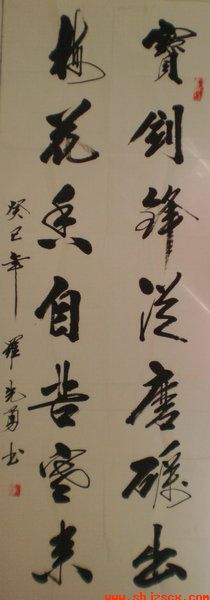 寶劍鋒從磨礪出
梅花香自苦寒來
癸巳年 羅先勇書
www.shjzscx.com